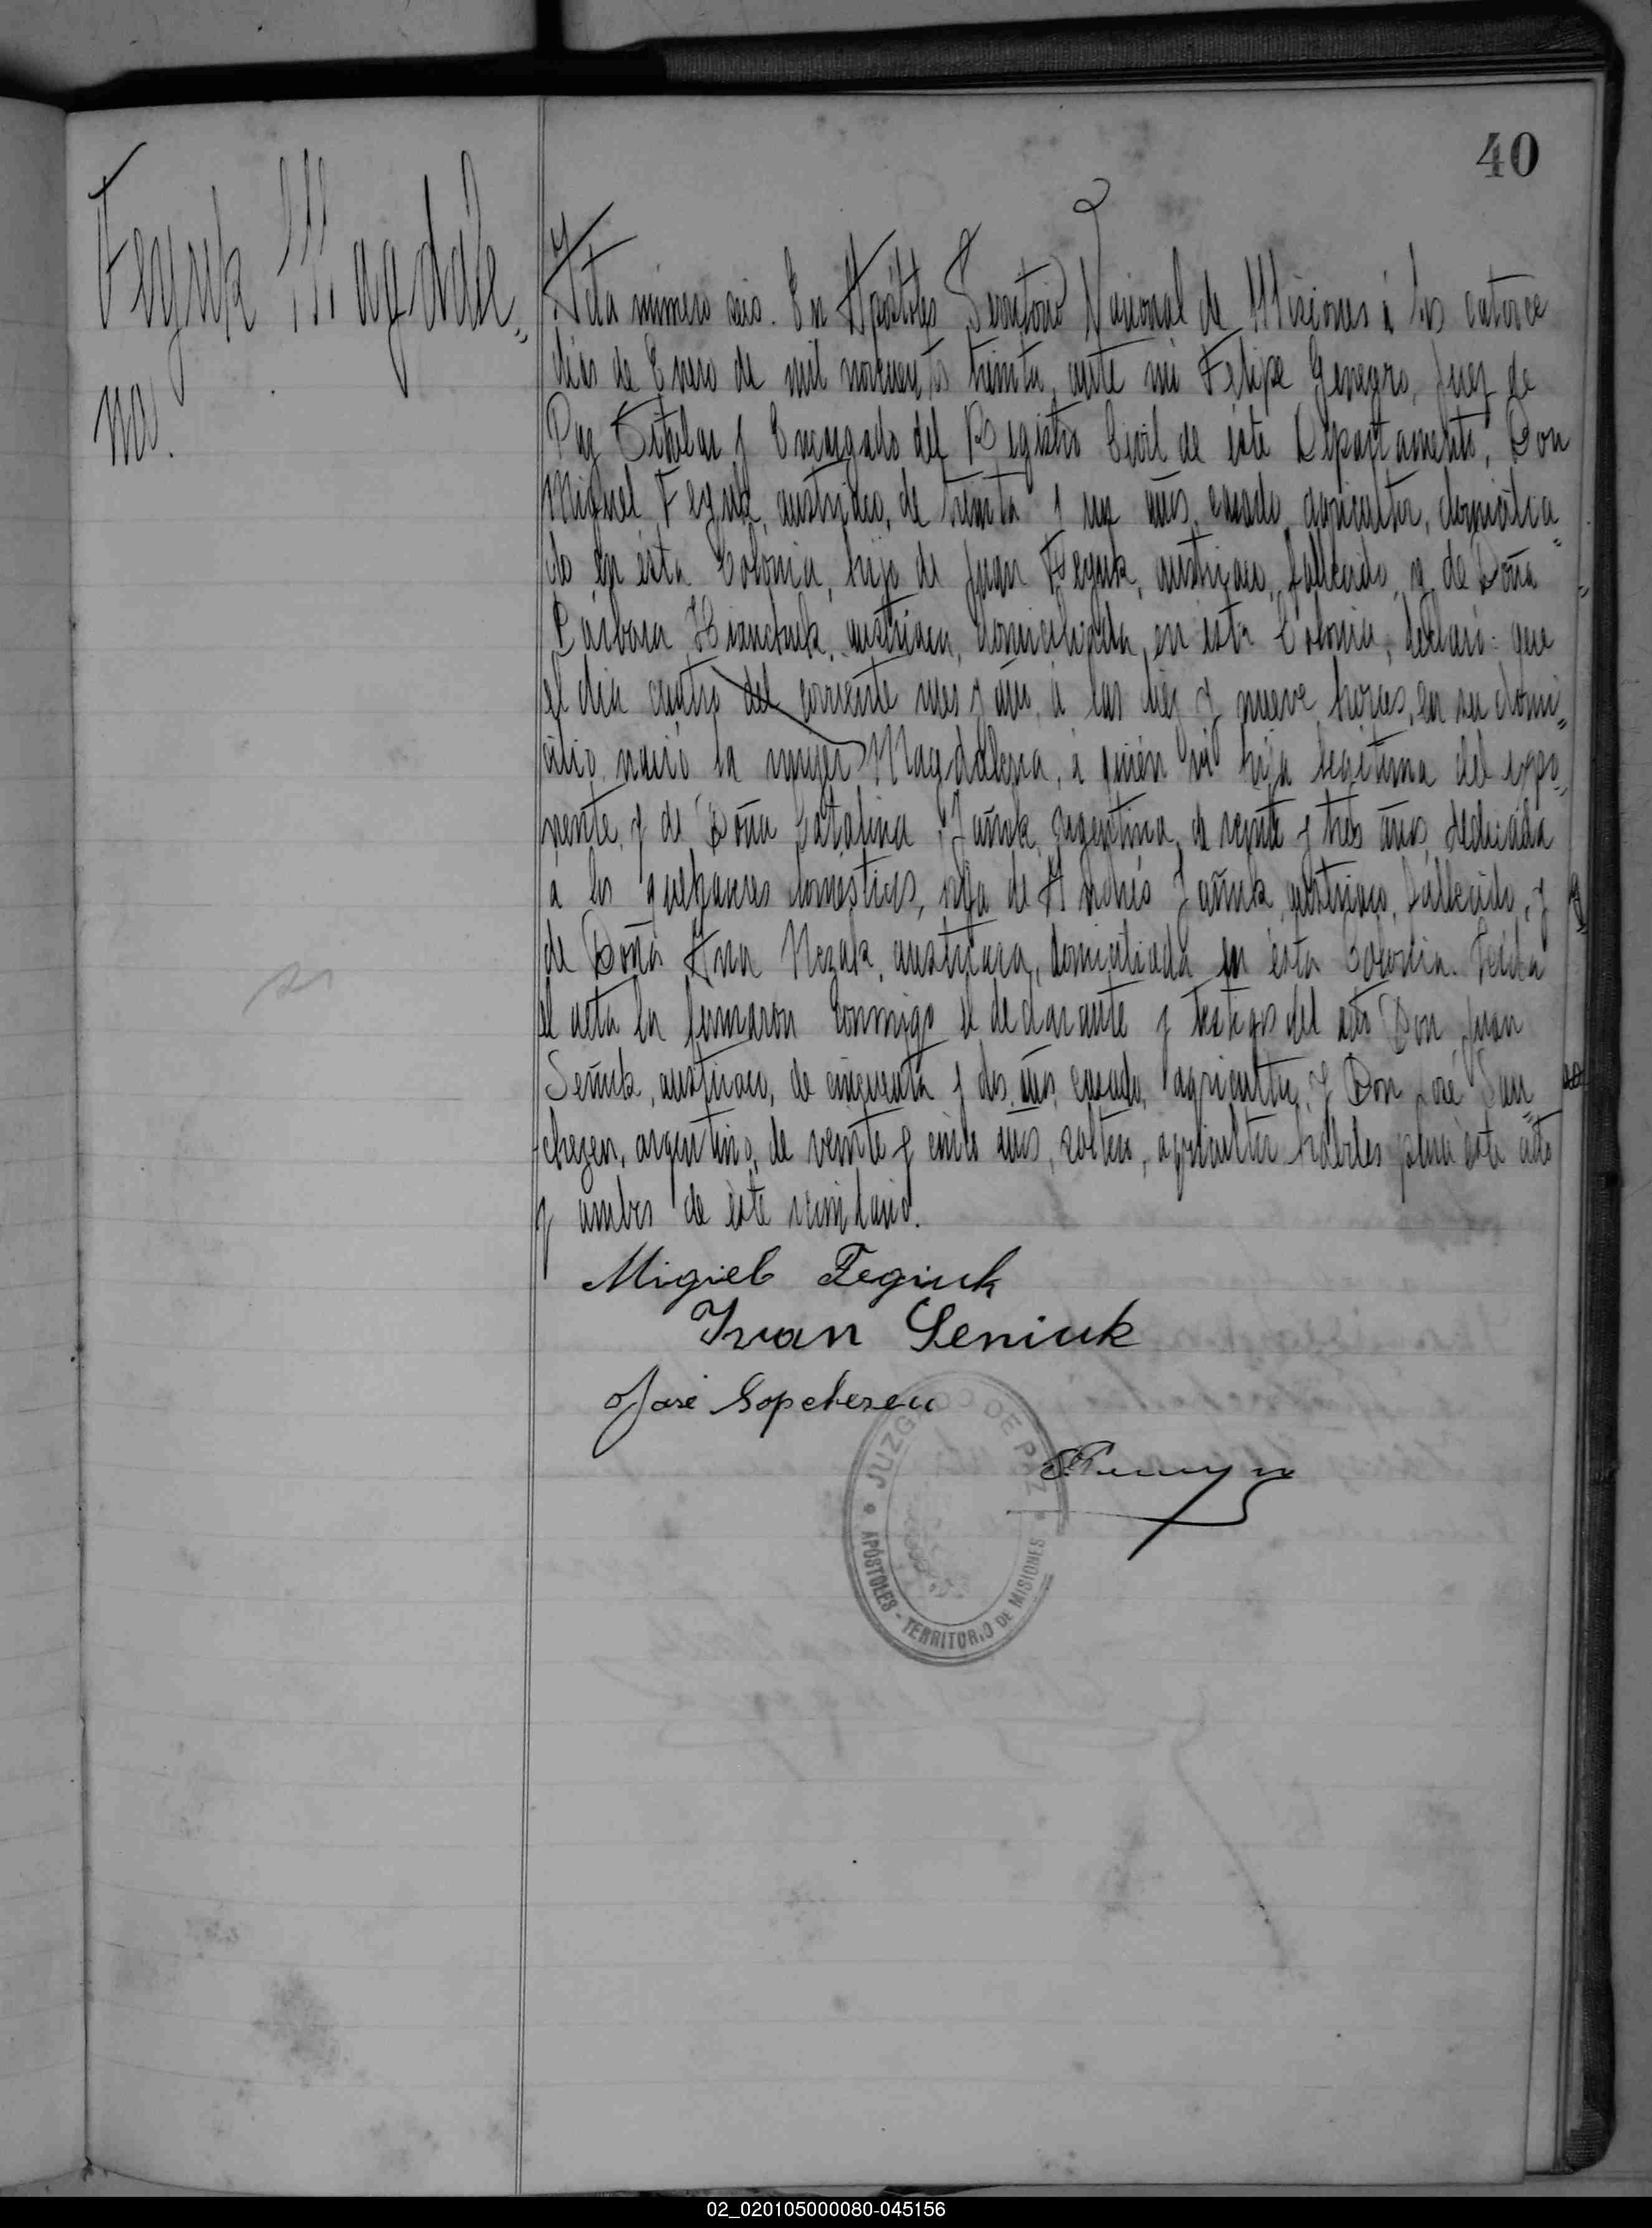 40
Feyuk Magdale=
na.
Acta número seis. En Apóstoles, Territorio Nacional de Misiones á los catorce
dias de Enero de mil novecientos treinta, ante mi Felipe Genegro, Juez de
Paz Titular y Encargado del Registro Civil de éste Departamento, Don
Miguel Feyuk, austriaco, de treinta y un años, casado, agricultor, domicilia=
do en ésta Colonia, hijo de Juan Feyuk, austriaco, fallecido, y de Doña
Bárbara austriaca, domiciliada en ésta Colonia, declaró: que
el dia cuatro del corriente mes y año, á las diez y nueve horas, en su domi=
cilio, nació la mujer Magdalena, á quién vi hija legítima del expo=
nente, y de Doña Catalina Yañuk, argentina, de veinte y tres años, dedicada
á los quehaceres domésticos, hija de Andrés Yañuk, austriaco, fallecido, y
de Doña Ana austriaca, domiciliada en ésta Colonia. Leida
el acta la firmaron conmigo el declarante y testigos del acto Don Juan
Señuk, austriaco, de cincuenta y dos años, casado, agricultor, y Don José Sap=
chezen, argentino, de veinte y cinco años, soltero, agricultor hábiles para este acto
y ambos de éste vecindario.
Migiel Fegiuk
Iwan Seniuk
José Sopchezen
JUZGADO DE PAZ
APÓSTOLES - TERRITORIO DE MISIONES
02_020105000080-045156